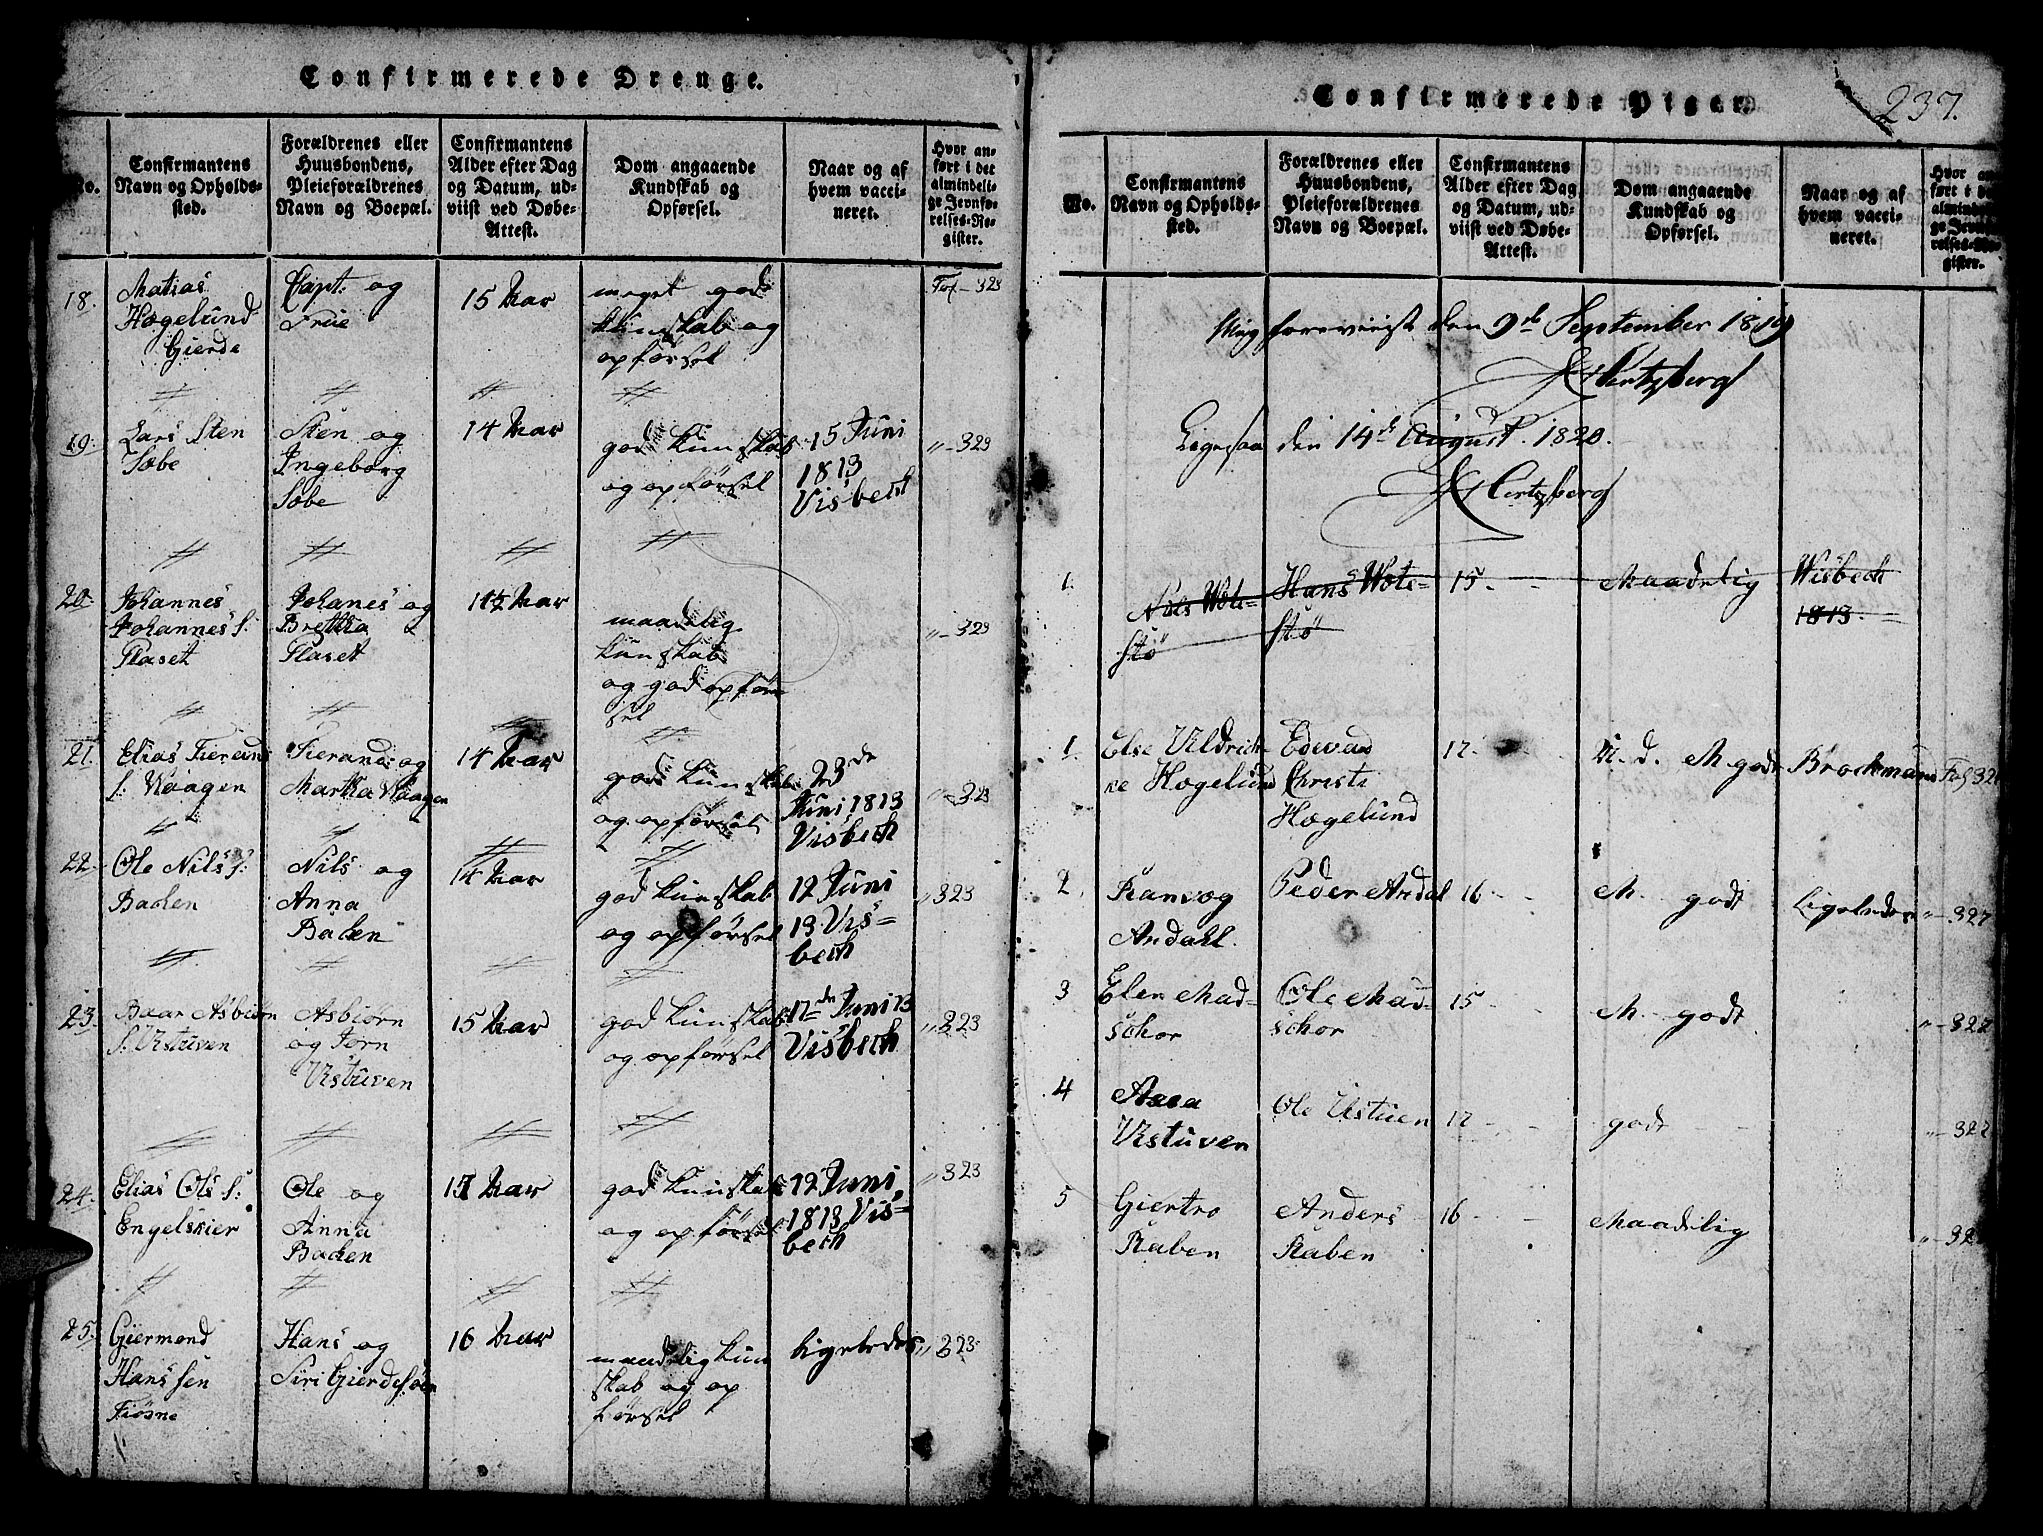 Confirmerede Drenge.
No.
Confirmantens
Navn og Opholds-
sted.
Forældrenes eller
Huusbondens,
Pleieforældrenes
Navn og Boepæl.
Confirmantens
Alder efter Dag
og Datum, ud-
viist ved Døbe-
Attest.
Dom angaaende
Kundskab og
Opførsel.
Naar og af
hvem vacci-
neret.
Hvor an-
ført i det
almindeli-
ge Jevnfø-
relses-Re-
gister.
18.
Matias
Hægelund
Gierde
Capt: og
Frue
15 Aar
meget god
kunskab og
opførsel
Fol - 323
19.
Lars Sten
Sæbe
Sten og
Ingeborg
Sæbe
14 Aar
god kunskab
og opførsel
15 Juni
1813
Visbech
" - 323
20
Johannes
Johannes s:
Flaset
Johanes og
Brettha
Flaset
Aar
maadelig
kunskab
og god opfør
sel
" - 323
21.
Elias
s. Waagen
og
Martha Waagen
14 Aar
god kunskab
og opførsel
23de
Juni, 1813
Visbech
" - 323
22.
Ole Nils s:
Backen
Nils og
Anna
Backen
14 Aar
god kunskab
og opførsel
12 Juni
13 Vis=
bech
" 323
23.
Baar Asbiørn
s. Ustuven
Asbiørn
og Jørn
Ustuven
15 Aar
god kunskab
og opførsel
17de Juni 13
Visbech
" 223
24.
Elias Ols s:
Engelskier
Ole og
Anna
Backen
Aar
god kunskab
og opførsel
12 Juni,
1813 Vis=
bech
" 323
25.
Giermond
Hans sen
Fiøsne
Hans og
Siri
16 Aar
maadelig kun
skab og op
førsel
Ligeledes
" 323
Confirmerede Piger.
237.
No.
Confirmantens
Navn og Opholds-
sted.
Forældrenes eller
Huusbondens,
Pleieforældrenes
Navn og Boepæl.
Confirmantens
Alder efter Dag
og Datum, ud-
viist ved Døbe-
Attest.
Dom angaaende
Kundskab og
Opførsel.
Naar og af
hvem vacci-
neret.
Hvor an-
ført i det
almindeli-
ge Jevnfø-
relses-Re-
gister.
Mig foreviist den 9de September 1819
Hertzberg
Ligesaa den 14de August. 1820.
Hertzberg
1.
Niels Wote-
stø
Hans Wote-
stø
15 -
Maadelig
Wisbech
1813.
1.
Else Uldrich-
ke Hogelund
Edevard
Christi
Hogelund
17 -
U. d. M. godt
Brochmand
Fol 32
2.
Ranvog
Andahl.
Peder Andal
16 -
M. godt
Ligeledes
" - 327
3
Elen Mad-
schor
Ole Mad-
schor
15 -
M. godt
" - 327
4
Ustuven
Ole Ustuen
17 -
godt
" - 327
5
Giertro
Raben
Anders
Raben
16 -
Maadilig
" - 32